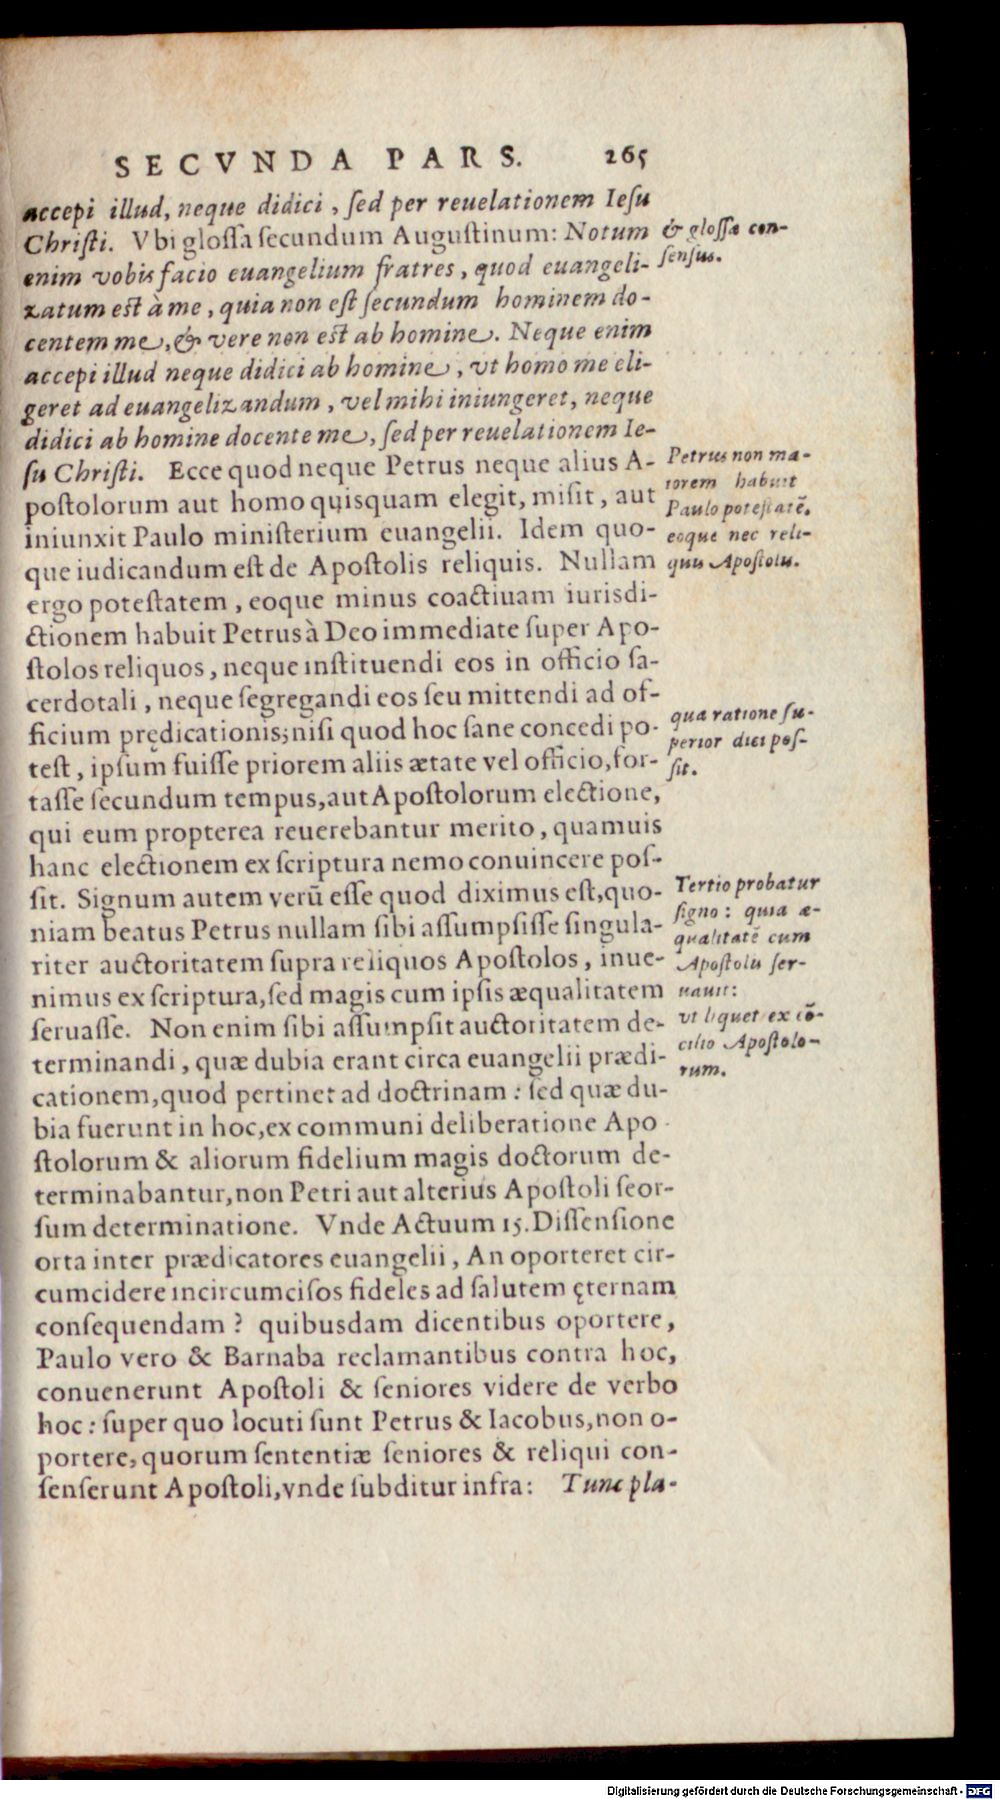 SECVNDA PARS. 265
accepi illud, neque didici, ſed per reuelationem Ieſu
Chriſti. Vbi gloſſa ſecundum Auguſtinum: Notum
enim vobis facio euangelium fratres, quod euangeli-
zatum eſt à me, quia non eſt ſecundum hominem do-
centem me, & vere non eſt ab homine. Neque enim
accepi illud neque didici ab homine, vt homo me eli-
geret ad euangelizandum, vel mihi iniungeret, neque
didici ab homine docente me, ſed per reuelationem Ie-
ſu Chriſti. Ecce quod neque Petrus neque alius A-
poſtolorum aut homo quiſquam elegit, miſit, aut
iniunxit Paulo miniſterium euangelii. Idem quo-
que iudicandum eſt de Apoſtolis reliquis. Nullam
ergo poteſtatem, eoque minus coactiuam iurisdi-
ctionem habuit Petrus à Deo immediate ſuper Apo-
ſtolos reliquos, neque inſtituendi eos in officio ſa-
cerdotali, neque ſegregandi eos ſeu mittendi ad of-
ficium prędicationis; niſi quod hoc ſane concedi po-
teſt, ipſum fuiſſe priorem aliis ætate vel officio, for-
taſſe ſecundum tempus, aut Apoſtolorum electione,
qui eum propterea reuerebantur merito, quamuis
hanc electionem ex ſcriptura nemo conuincere poſ-
ſit. Signum autem verũ eſſe quod diximus eſt, quo-
niam beatus Petrus nullam ſibi aſſumpſiſſe ſingula-
riter auctoritatem ſupra reliquos Apoſtolos, inue-
nimus ex ſcriptura, ſed magis cum ipſis æqualitatem
ſeruaſſe. Non enim ſibi aſſumpſit auctoritatem de-
terminandi, quæ dubia erant circa euangelii prædi-
cationem, quod pertinet ad doctrinam: ſed quæ du-
bia fuerunt in hoc, ex communi deliberatione Apo-
ſtolorum & aliorum fidelium magis doctorum de-
terminabantur, non Petri aut alterius Apoſtoli ſeor-
ſum determinatione. Vnde Actuum 15. Diſſenſione
orta inter prædicatores euangelii, An oporteret cir-
cumcidere incircumciſos fideles ad ſalutem ęternam
conſequendam? quibusdam dicentibus oportere,
Paulo vero & Barnaba reclamantibus contra hoc,
conuenerunt Apoſtoli & ſeniores videre de verbo
hoc: ſuper quo locuti ſunt Petrus & Iacobus, non o-
portere, quorum ſententiæ ſeniores & reliqui con-
ſenſerunt Apoſtoli, vnde ſubditur infra: Tunc pla-
& gloſſæ con-
ſenſus.
Petrus non ma-
iorem habuit
Paulo poteſtatẽ,
eoque nec reli-
quis Apoſtolis.
qua ratione ſu-
perior dici poſ-
ſit.
Tertio probatur
ſigno: quia æ-
qualitatẽ cum
Apoſtolis ſer-
nauit:
vt liquet ex cõ-
cilio Apoſtolo-
rum.
Digitalisierung gefördert durch die Deutsche Forschungsgemeinschaft - DFG